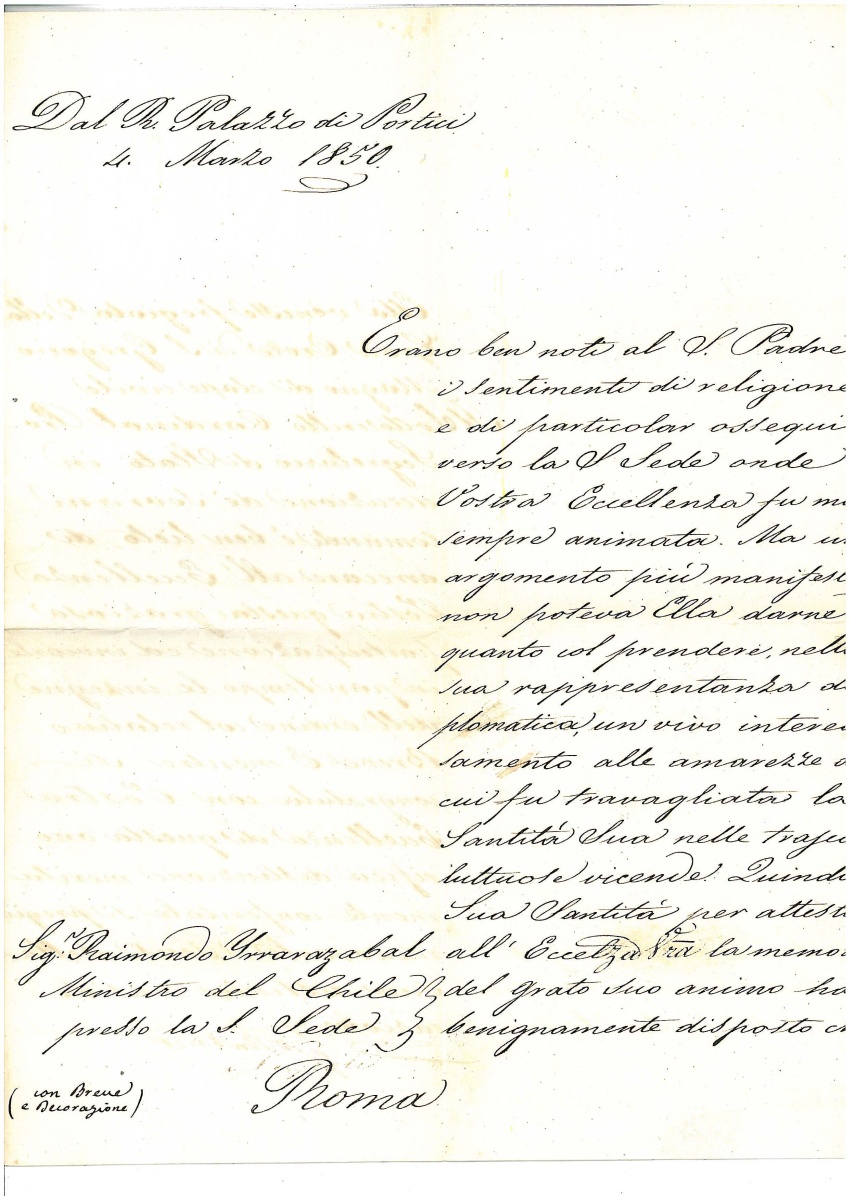 Dal R. Palazzo di Portici
4. Marzo 1850.
Erano ben noti al S. Padre
i sentimenti di religione
e di particolar ossequi
verso la S Sede onde
Vostra Eccellenza fu m
sempre animata. Ma u
argomento più manifes
non poteva Ella darne
quanto col prendere, nell
sua rappresentanza d
plomatica, un vivo interes
samento alle amarezze d
cui fu travagliata la
Santità Sua nelle trasc
luttuose vicende. Quindi
Sua Santità per attest
all' Eccelza Vra la memo
del grato suo animo ha
benignamente disposto c
Sig.r Raimondo Yrrarazabal
Ministro del Chile
presso la S. Sede
Roma
(con Breve
e Decorazione)